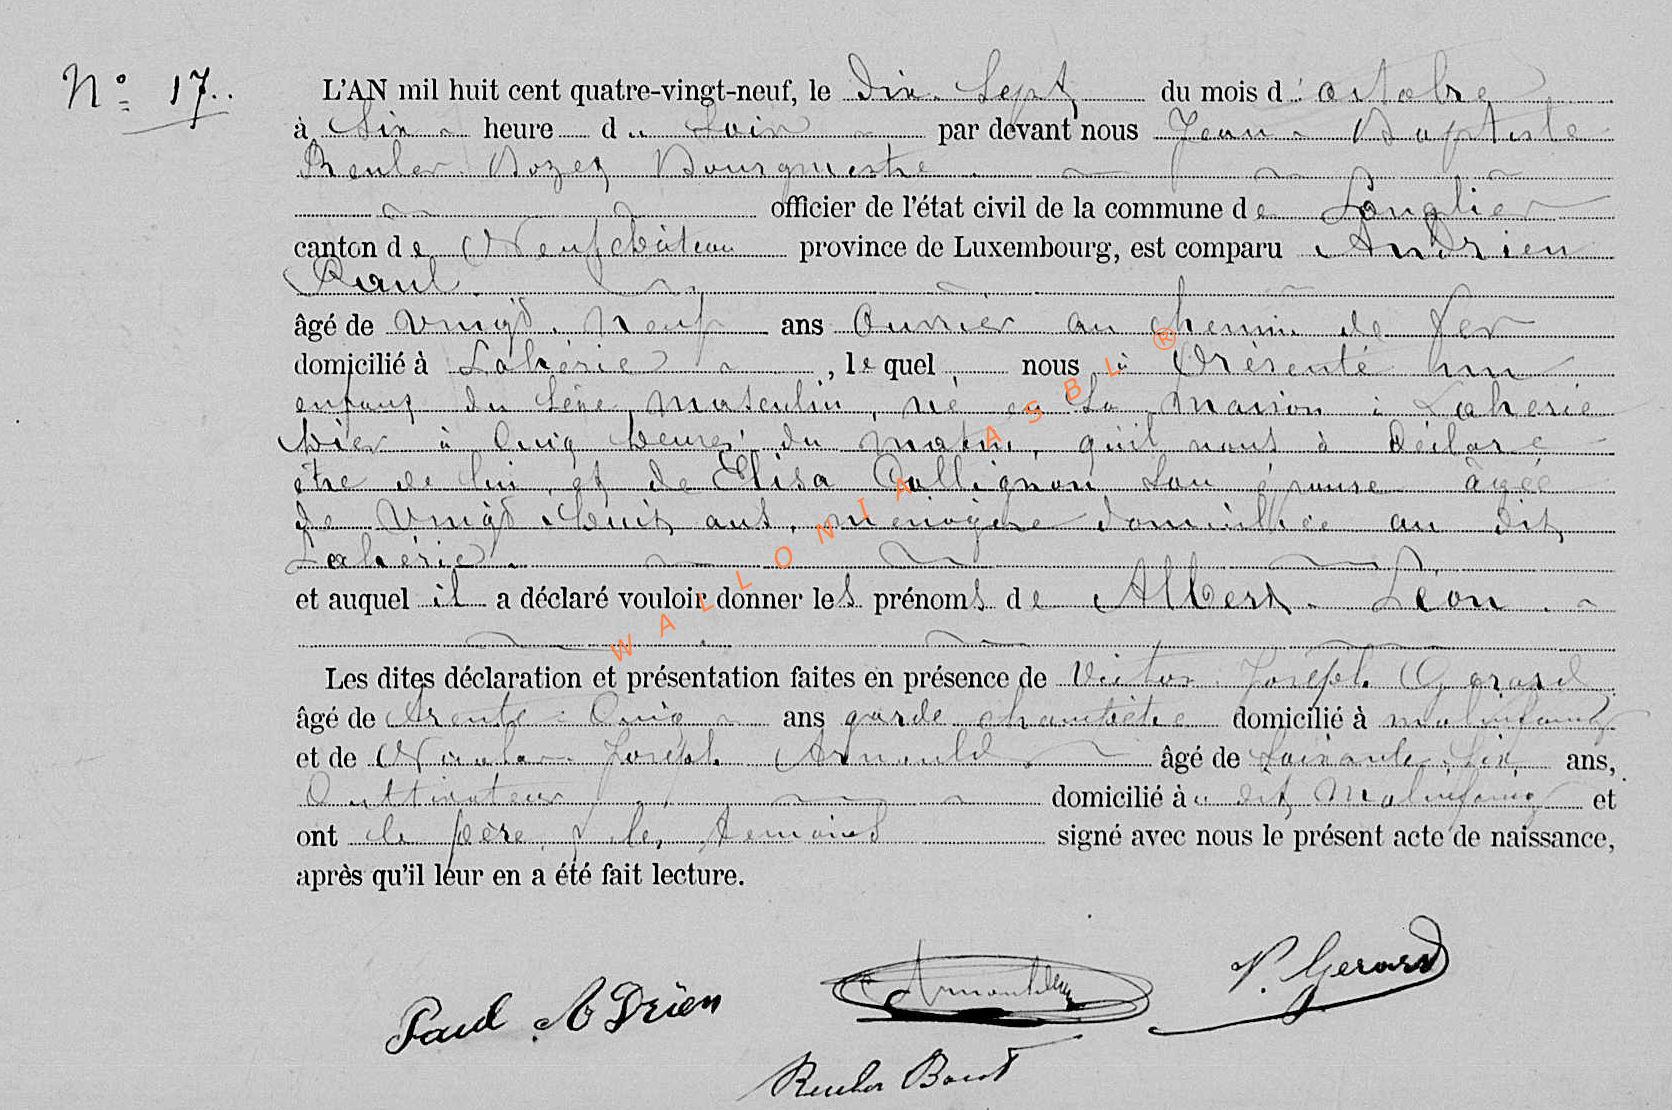 N° 17..
L'AN mil huit cent quatre-vingt-neuf, le Dix-Sept du mois d'octobre
à Six heure du Soir par devant nous Jean-Baptiste
Reuler Bozet Bourgmestre
officier de l'état civil de la commune de Longlier
canton de Neufchâteau province de Luxembourg, est comparu Andrien
Paul
âgé de vingt neuf ans Ouvrier au chemin de fer
domicilié à Lahérie, lequel nous à Présenté un
enfant du Séxe masculin, né en Sa maison à Laherie
hier à Cinq heures du matin, qu'il nous à Déclaré
être de lui et de Elisa Collignon Son épouse âgée
de vingt huit ans, ménagère domiciliée au dit
Lahérie
et auquel il a déclaré vouloir donner les prénoms de Albert-Léon
Les dites déclaration et présentation faites en présence de Victor Joseph Gerard
âgé de trente Cinq ans garde champêtre domicilié à malinfaing
et de Nicolas Joseph Arnould âgé de Soixante Six ans,
Cultivateur domicilié au dit Malinfaing et
ont le père & les temoins signé avec nous le présent acte de naissance,
après qu'il leur en a été fait lecture.
Paul ADrien
V. Gerard
WALLONIA ASBL ®